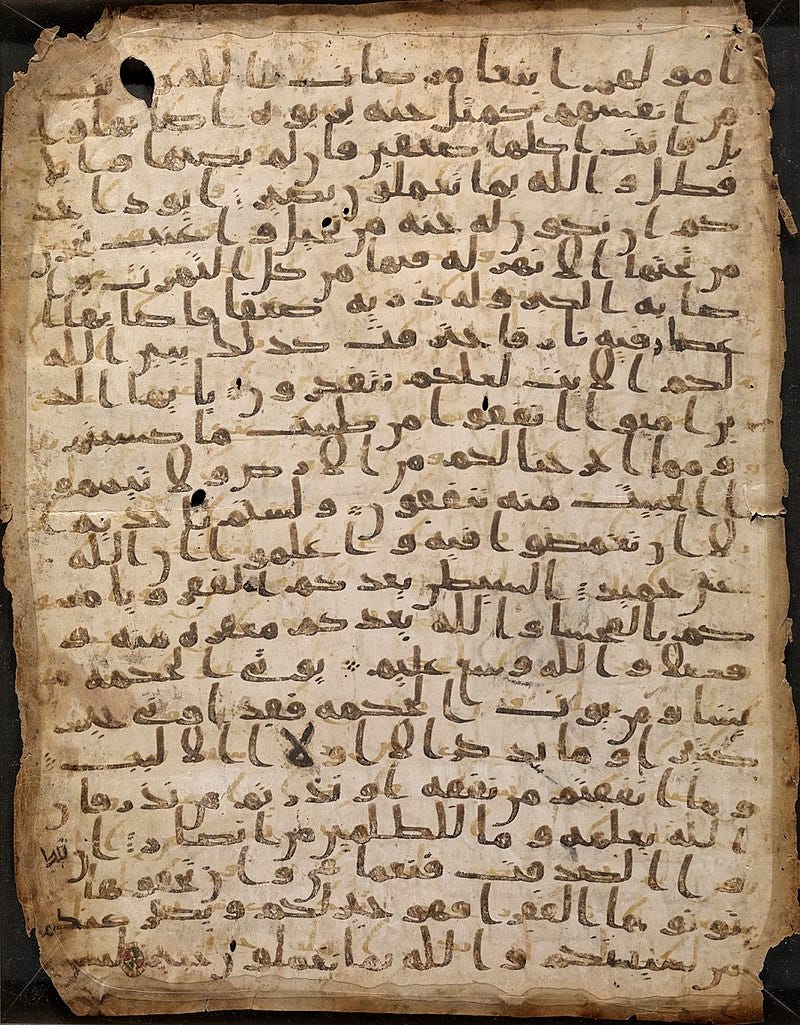 امولهم ابتغا مرضات الله
من انفسهم كمثل جنه بربوه اصابها وا
بل فاتت اكلها ضعفين فان لم يصبها وابل
فطل و الله بما تعملون بصير ايود احد
كم ان تكون له جنه من نخيل و اعنب تجري
من تحتها الانهر له فيها من كل الثمرت و ا
صابه الكبر وله ذريه ضعفا فاصابها ا
عصار فيه نار فاحترقت كذلك يبين الله
لكم الايت لعلكم تتفكرون يايها الذ
ين امنوا انفقوا من طيبت ما كسبتم
و مما اخرجنا لكم من الارض و لا تيمموا
الخبيث منه تنفقون و لستم باخذيه ا
لا ان تغمضوا فيه و اعلموا ان الله
غني حميد الشيطن يعدكم الفقر و يامر
كم بالفحشا و الله يعدكم مغفره منه و
فضلا و الله وسع عليم يوتي الحكمه من
يشا و من يوت الحكمه فقد اوتي خيرا
كثيرا و ما يذكر الا اولوا الالبب
و ما انفقتم من نفقه او نذرتم من نذر فان
الله يعلمه و ما للظلمين من انصار ان
تبدوا الصدقت فنعما هي و ان تخفوها
وتوتوها الفقرا فهو خير لكم و يكفر عنكم
من سيتكم و الله بما تعملون خبير ليس